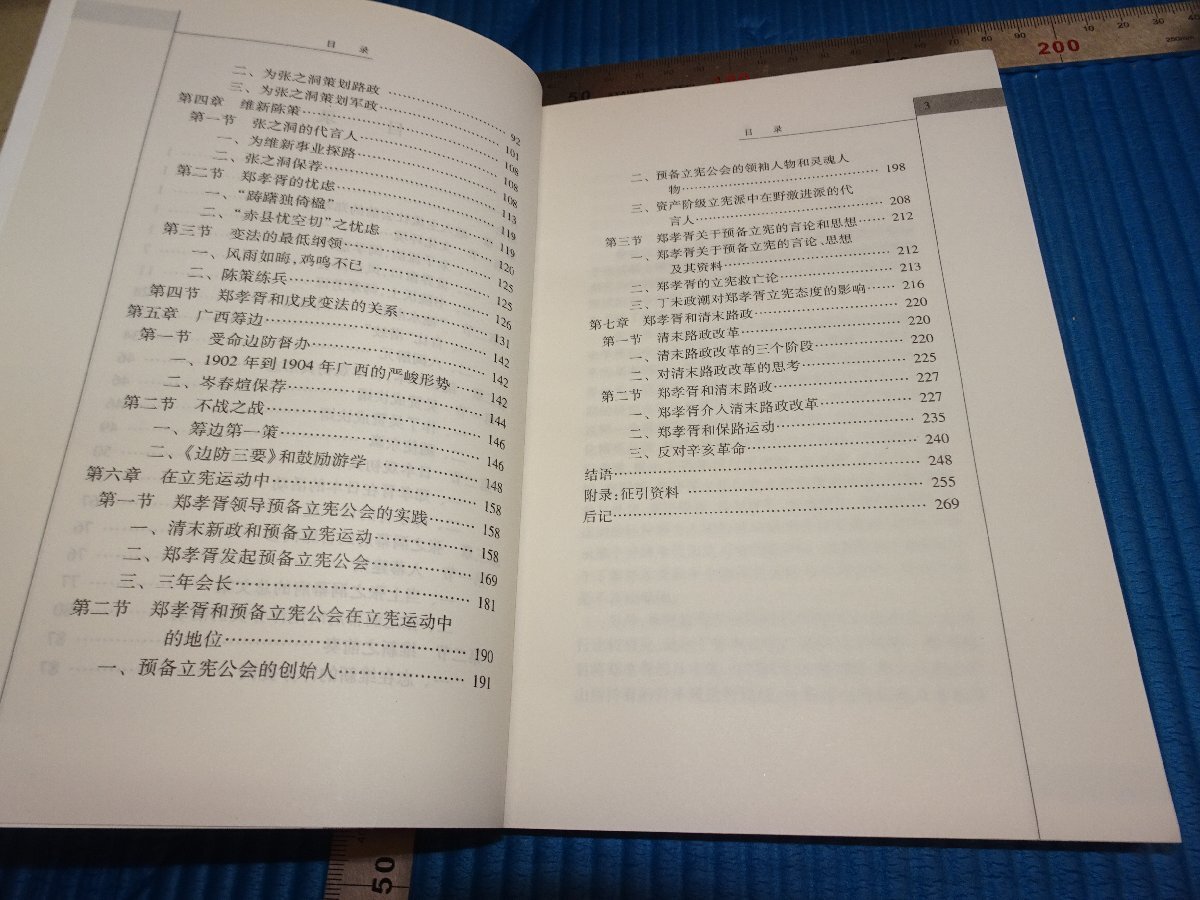 目 录
二、为张之洞策划路政 …… 92
三、为张之洞策划军政 …… 101
第四章 维新陈策 …… 108
第一节 张之洞的代言人 …… 108
一、为维新事业探路 …… 108
二、张之洞保荐 …… 113
第二节 郑孝胥的忧虑 …… 119
一、“踌躇独倚楹” …… 119
二、“赤县忧空切”之忧虑 …… 120
第三节 变法的最低纲领 …… 125
一、风雨如晦,鸡鸣不已 …… 125
二、陈策练兵 …… 126
第四节 郑孝胥和戊戌变法的关系 …… 131
第五章 广西筹边 …… 142
第一节 受命边防督办 …… 142
一、1902年到1904年广西的严峻形势 …… 142
二、岑春煊保荐 …… 144
第二节 不战之战 …… 146
一、筹边第一策 …… 146
二、《边防三要》和鼓励游学 …… 148
第六章 在立宪运动中 …… 158
第一节 郑孝胥领导预备立宪公会的实践 …… 158
一、清末新政和预备立宪运动 …… 158
二、郑孝胥发起预备立宪公会 …… 169
三、三年会长 …… 181
第二节 郑孝胥和预备立宪公会在立宪运动中
的地位 …… 190
一、预备立宪公会的创始人 …… 191
3
目 录
二、预备立宪公会的领袖人物和灵魂人
物 …… 198
三、资产阶级立宪派中在野激进派的代
言人 …… 208
第三节 郑孝胥关于预备立宪的言论和思想 …… 212
一、郑孝胥关于预备立宪的言论、思想
及其资料 …… 212
二、郑孝胥的立宪救亡论 …… 213
三、丁未政潮对郑孝胥立宪态度的影响 …… 216
第七章 郑孝胥和清末路政 …… 220
第一节 清末路政改革 …… 220
一、清末路政改革的三个阶段 …… 220
二、对清末路政改革的思考 …… 225
第二节 郑孝胥和清末路政 …… 227
一、郑孝胥介入清末路政改革 …… 227
二、郑孝胥和保路运动 …… 235
三、反对辛亥革命 …… 240
结语 …… 248
附录:征引资料 …… 255
后记 …… 269
50
200
50